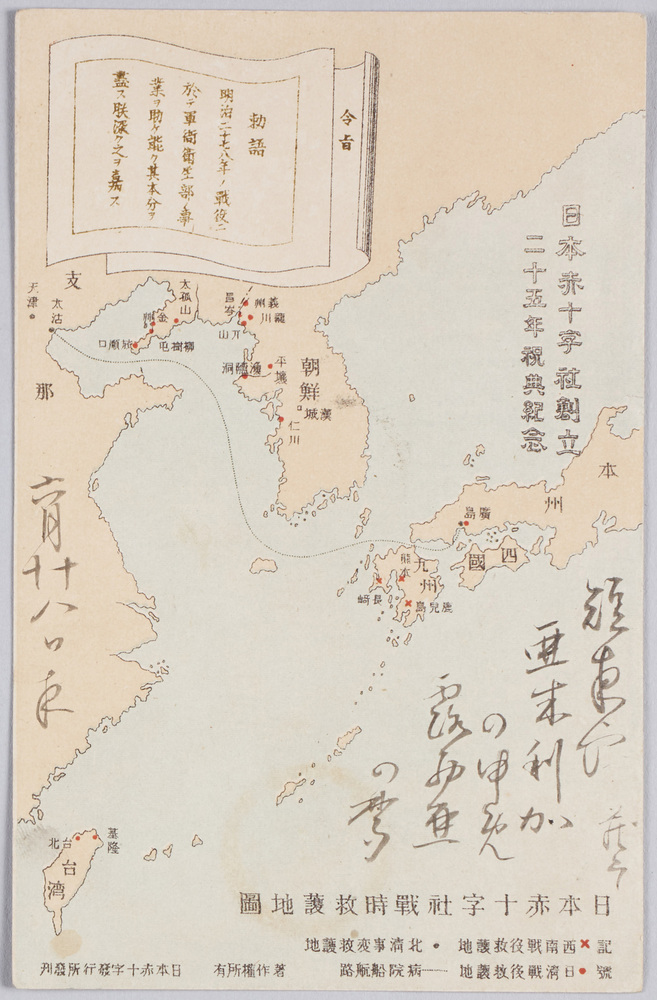 令旨
勅語
明治二十七八年ノ戦役ニ
於テ軍衙衛生部ノ事
業ヲ助ケ能ク其本分ヲ
盡ス朕深ク之ヲ嘉ス
日本赤十字社創立
二十五年祝典紀念
支
那
天津
太沽
太孤山
金州
旅順口
柳樹屯
義州
龍川
朝鮮
平壤
漁隱洞
漢城
仁川
本
州
廣島
四國
九州
熊本
長崎
鹿兒島
基隆
台北
台湾
亜米利加
の申
露西亜
の
六月廿八日
日本赤十字社戦時救護地圖
記號
×西南戦役救護地
●日清戦役救護地
●北清事変救護地
病院船航路
著作權所有
日本赤十字發行所發刋